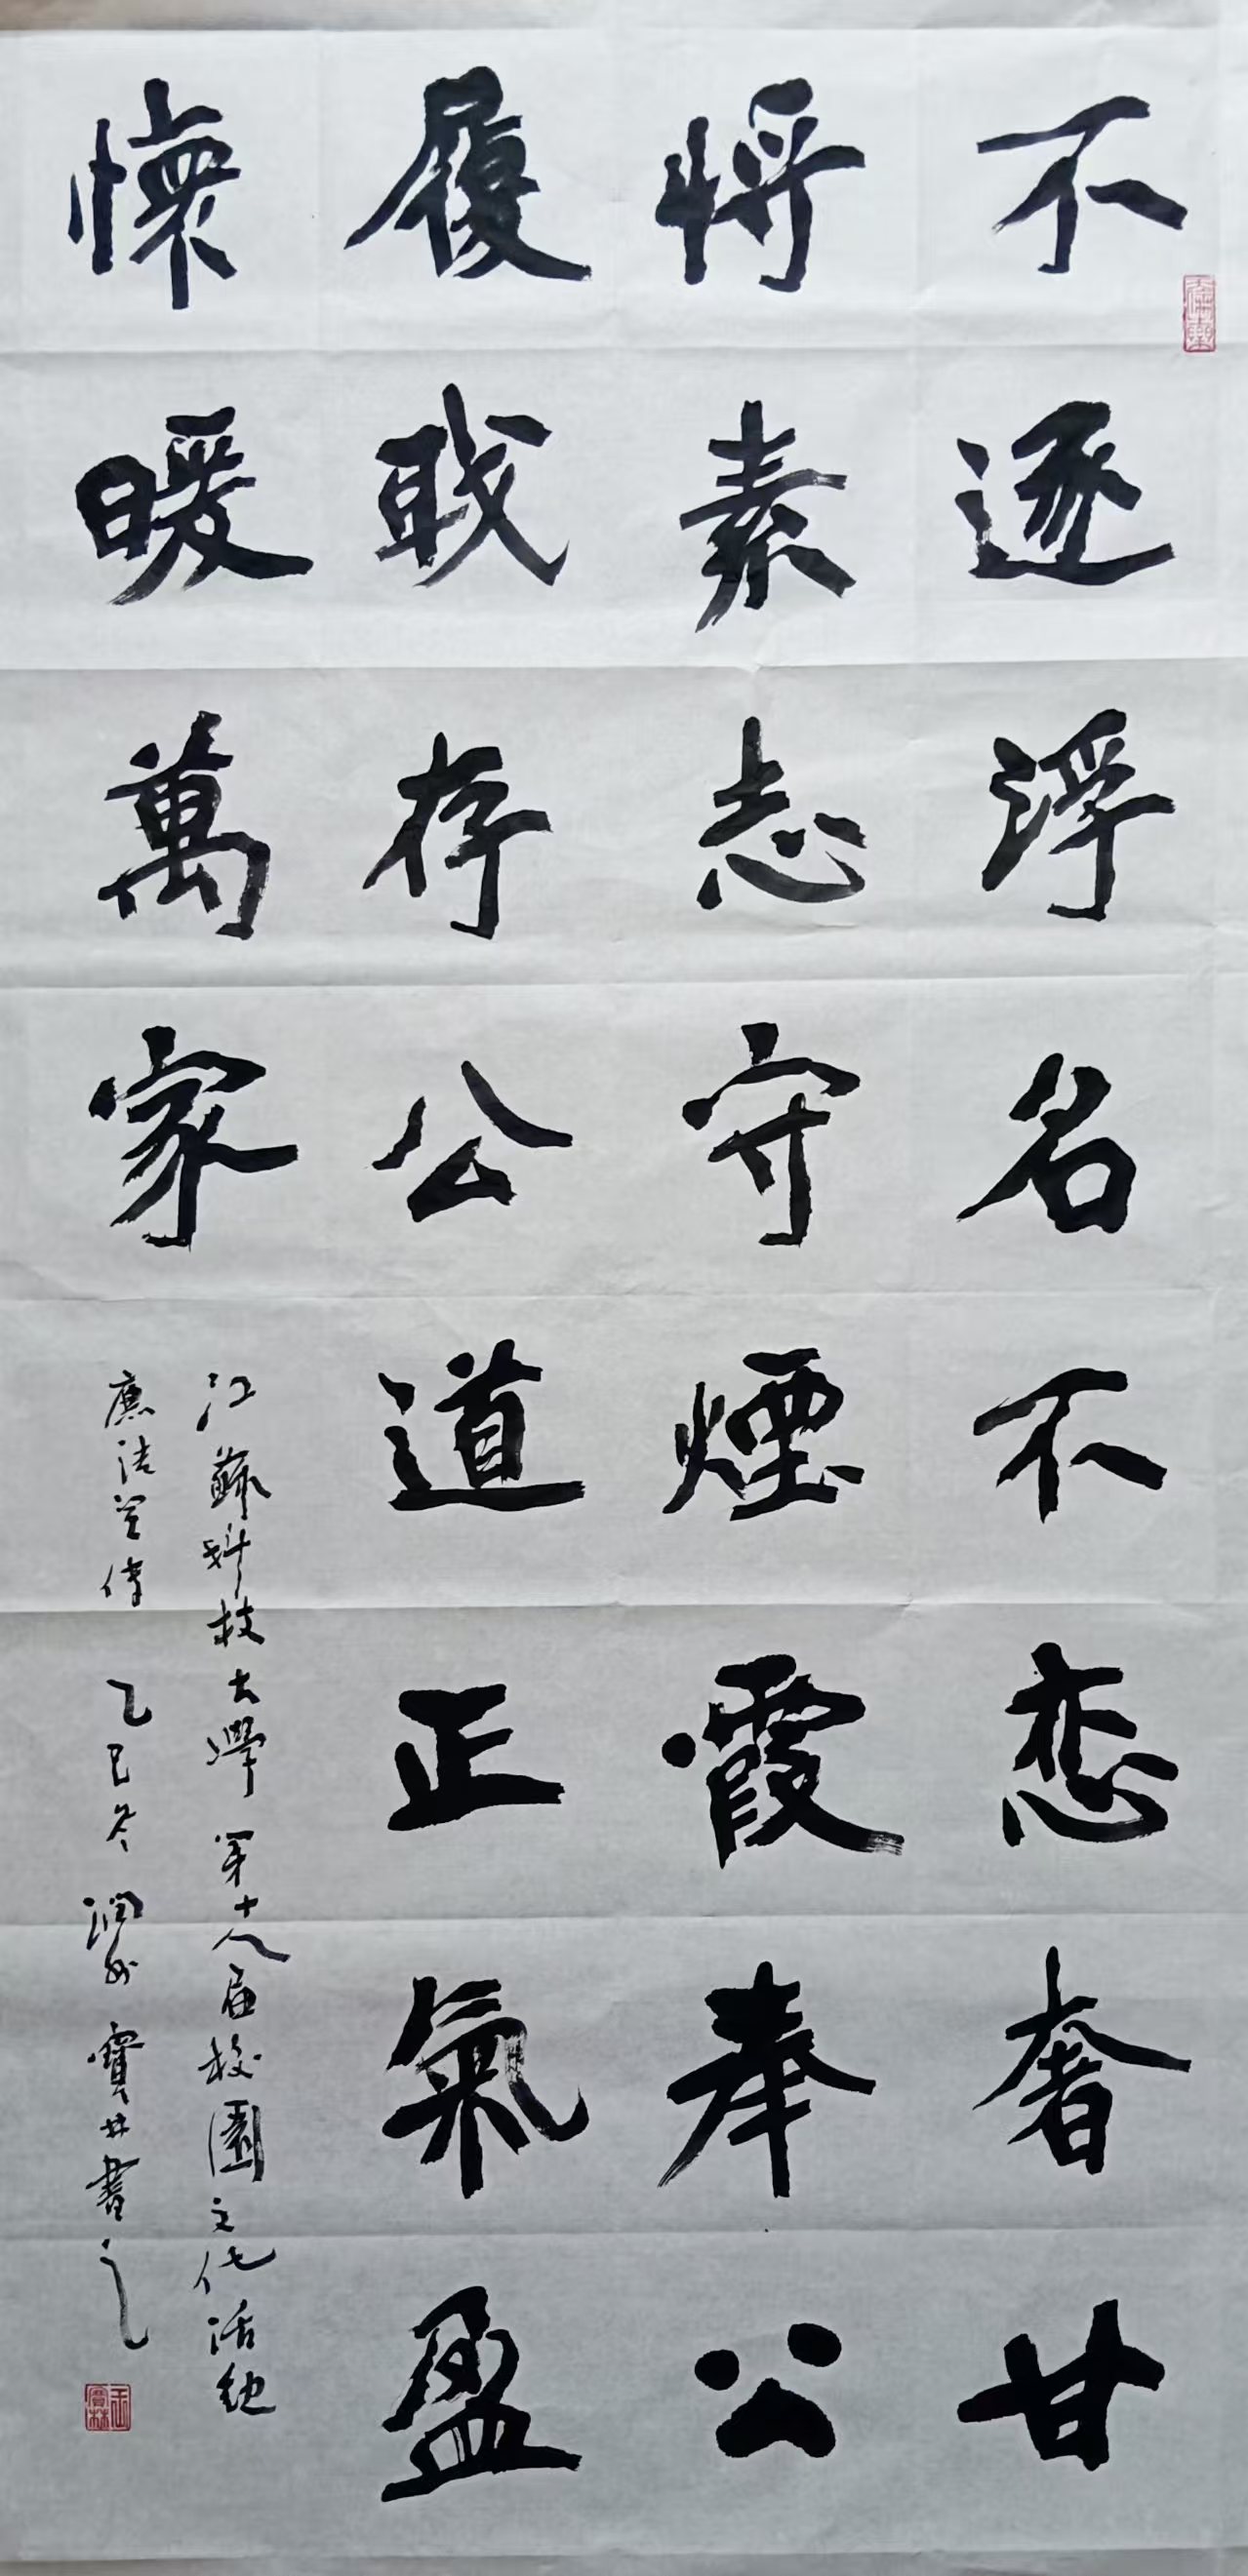 不逐浮名不恋奢甘
将素志守煙霞奉公
履职存公道正氣盈
懷暖萬家
江蘇科技大學第十八届校園文化活動
廉洁宣传 乙巳冬 润州 寶林書之